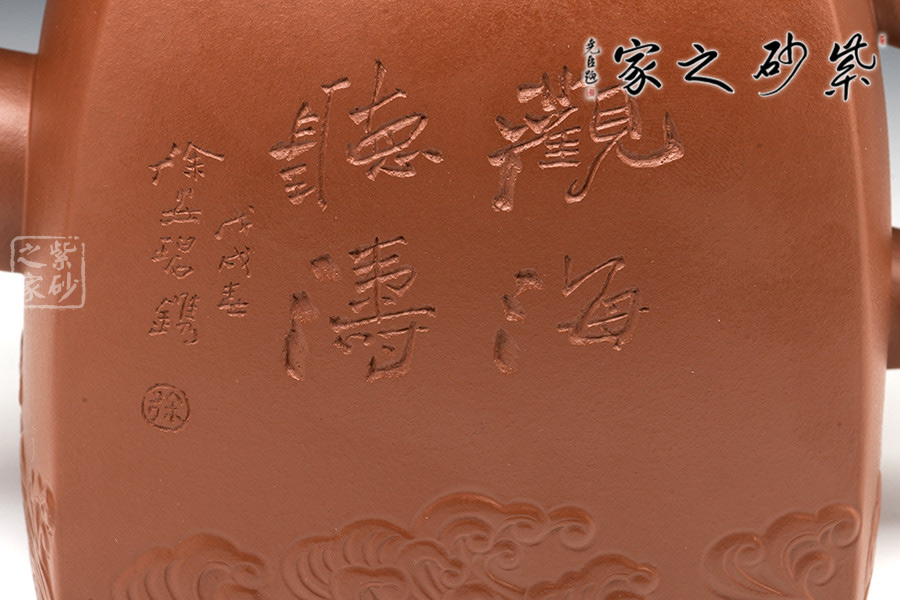 紫砂之家
觀海
聽濤
戊戌春
徐孟碧鐫
徐
紫砂
之家